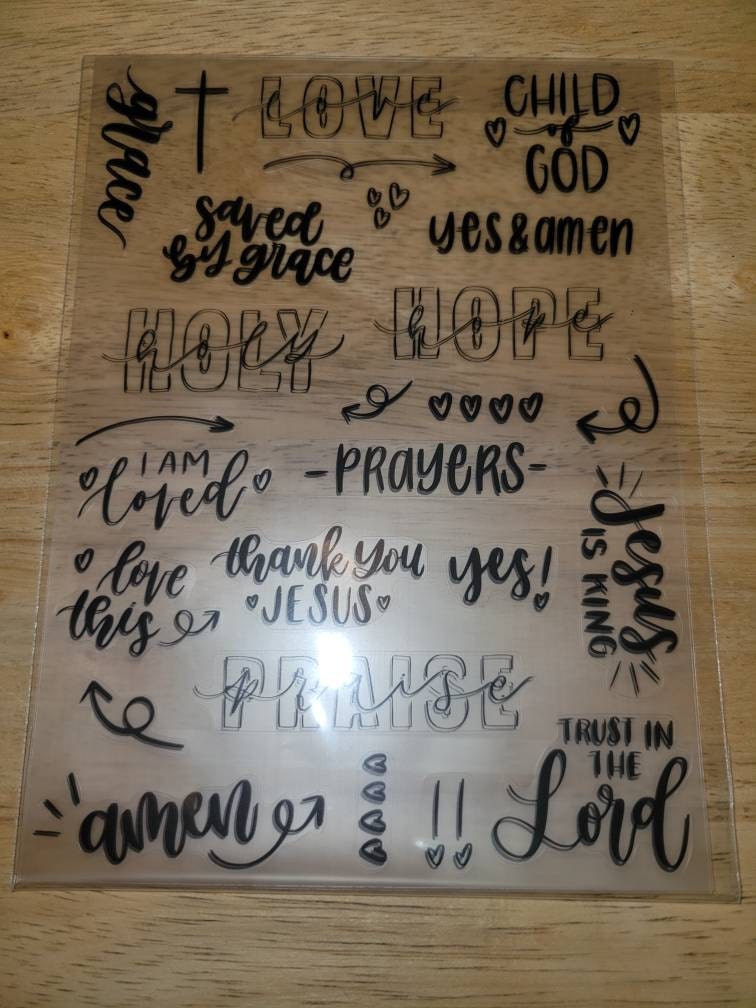 grace
LOVE
love
CHILD
of
GOD
saved
by grace
yes & amen
HOLY
holy
HOPE
hope
I AM
loved
-PRAYERS-
Jesus
IS KING
love
this
thank you
JESUS
yes!
PRAISE
praise
TRUST IN
THE
Lord
amen
!!